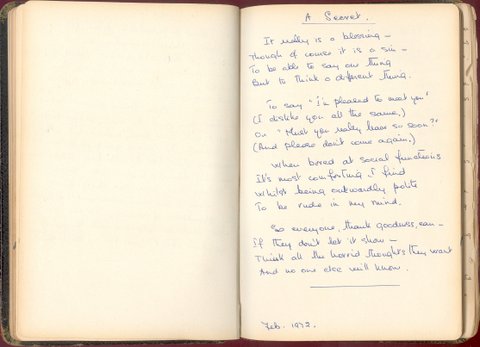 A Secret.
It really is a blessing –
Though of course it is a sin –
To be able to say one thing
But to think a different thing.
To say "I'm pleased to meet you"
(I dislike you all the same.)
Or "Must you really leave so soon?"
(And please don't come again.)
When bored at social functions
It's most comforting I find
Whilst being outwardly polite
To be rude in my mind.
So everyone, thank goodness, can –
If they don't let it show –
Think all the horrid thoughts they want
And no one else will know.
Feb. 1972.